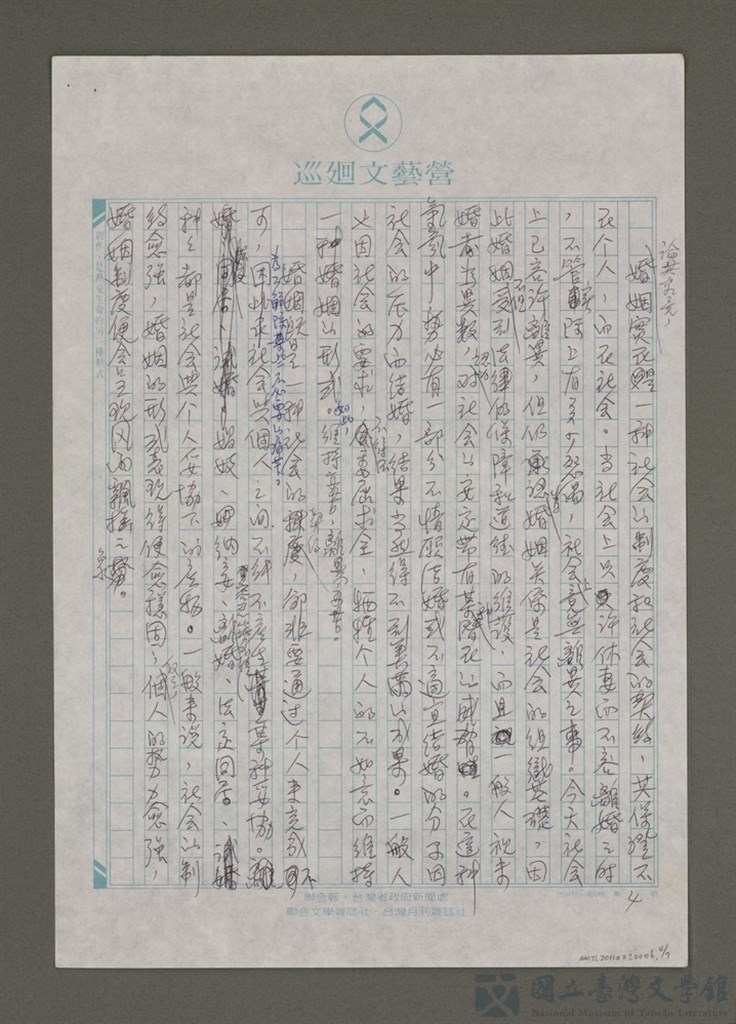 巡廻文藝營
論其究竟，
婚姻實在是一種社會的制度和社會的契約，其保證不
在個人，而在社會。當社會上只允許休妻而不容離婚之時
，不管實際上有多少怨偶，社會上竟無離異之事。今天社會
上已容許離異，但仍承認婚姻關係是社會的組織基礎，因
此婚姻受到法律的保障和道德的維護，而且一般人視未
婚者為異數，對社會的安定帶有某種潛在的威脅。在這種
氣氛中勢必有一部分不情願結婚或不適宜結婚的分子因
社會的壓力而結婚，結果當然得不到美滿的成果。一般人
又因社會的要求，委屈求全，犧牲個人的不如意而維持
一種婚姻的形式。如此，維持亦苦，離異亦苦。
婚姻既是一種社會的制度，卻非要通過個人來完成不
為了解除某些不必要的痛苦。
可，因此在社會與個人之間不能不產生某種妥協。
婚、試婚、娼妓、納妾、離婚、法定同居、試婚
種種都是社會與個人妥協下的產物。一般來說，社會的制
約愈強，婚姻的形式表現得便愈穩固；個人的勢力愈強，
婚姻制度便會呈現風雨飄搖之象。
4
聯合報・台灣省政府新聞處
聯合文學雜誌社・台灣月刊雜誌社
NMTL20110320006 4/7
國立臺灣文學館
National Museum of Taiwan Literature